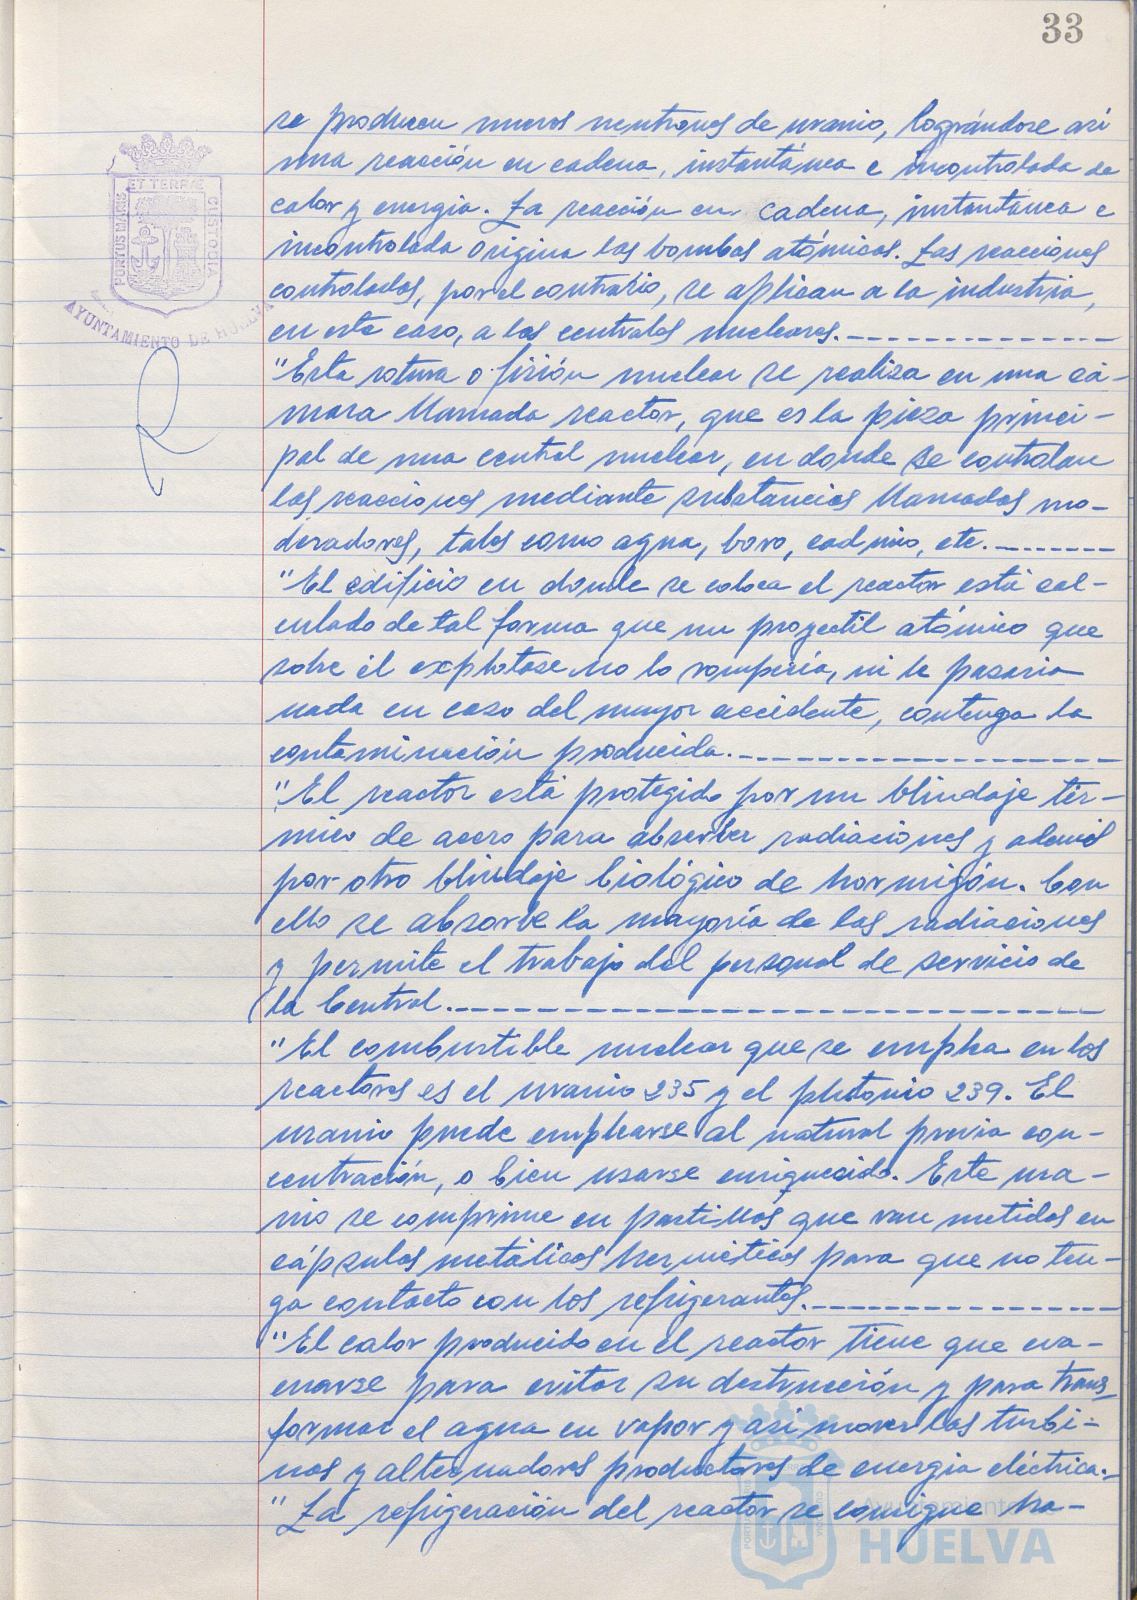 33
se producen nuevos neutrones de uranio, lográndose así
una reacción en cadena, instantánea e incontrolada de
calor y energia. La reacción en cadena, instantánea e
incontrolada origina las bombas atómicas. Las reacciones
controladas, por el contrario, se aplican a la industria,
en este caso, a las centrales nucleares.
"Esta rotura o fisión nuclear se realiza en una cá-
mara llamada reactor, que es la pieza princi-
pal de una central nuclear, en donde se controlan
las reacciones mediante substancias llamadas mo-
deradores, tales como agua, boro, cadmio, etc.
"El edificio en donde se coloca el reactor está cal-
culado de tal forma que un proyectil atómico que
sobre él explotase no lo rompería, ni le pasaria
nada en caso del mayor accidente, contenga la
contaminación producida.
"El reactor está protegido por un blindaje tér-
mico de acero para absorber radiaciones y además
por otro blindaje biológico de hormigón. Con
ello se absorbe la mayoría de las radiaciones
y permite el trabajo del personal de servicio de
la Central.
"El combustible nuclear que se emplea en los
reactores es el uranio 235 y el plutonio 239. El
uranio puede emplearse al natural previa con-
centración, o bien usarse enriquecido. Este ura-
nio se comprime en pastillas que van metidas en
cápsulas metálicas herméticas para que no ten-
ga contacto con los refrigerantes.
"El calor producido en el reactor tiene que eva-
cuarse para evitar su destrucción y para trans
formar el agua en vapor y asi mover las turbi-
nas y alternadores productores de energia eléctrica.
"La refrigeración del reactor se consigue ha-
PORTUS MARIS
ET TERRAE
CUSTODIA
AYUNTAMIENTO DE HUELVA
Ayuntamiento
HUELVA